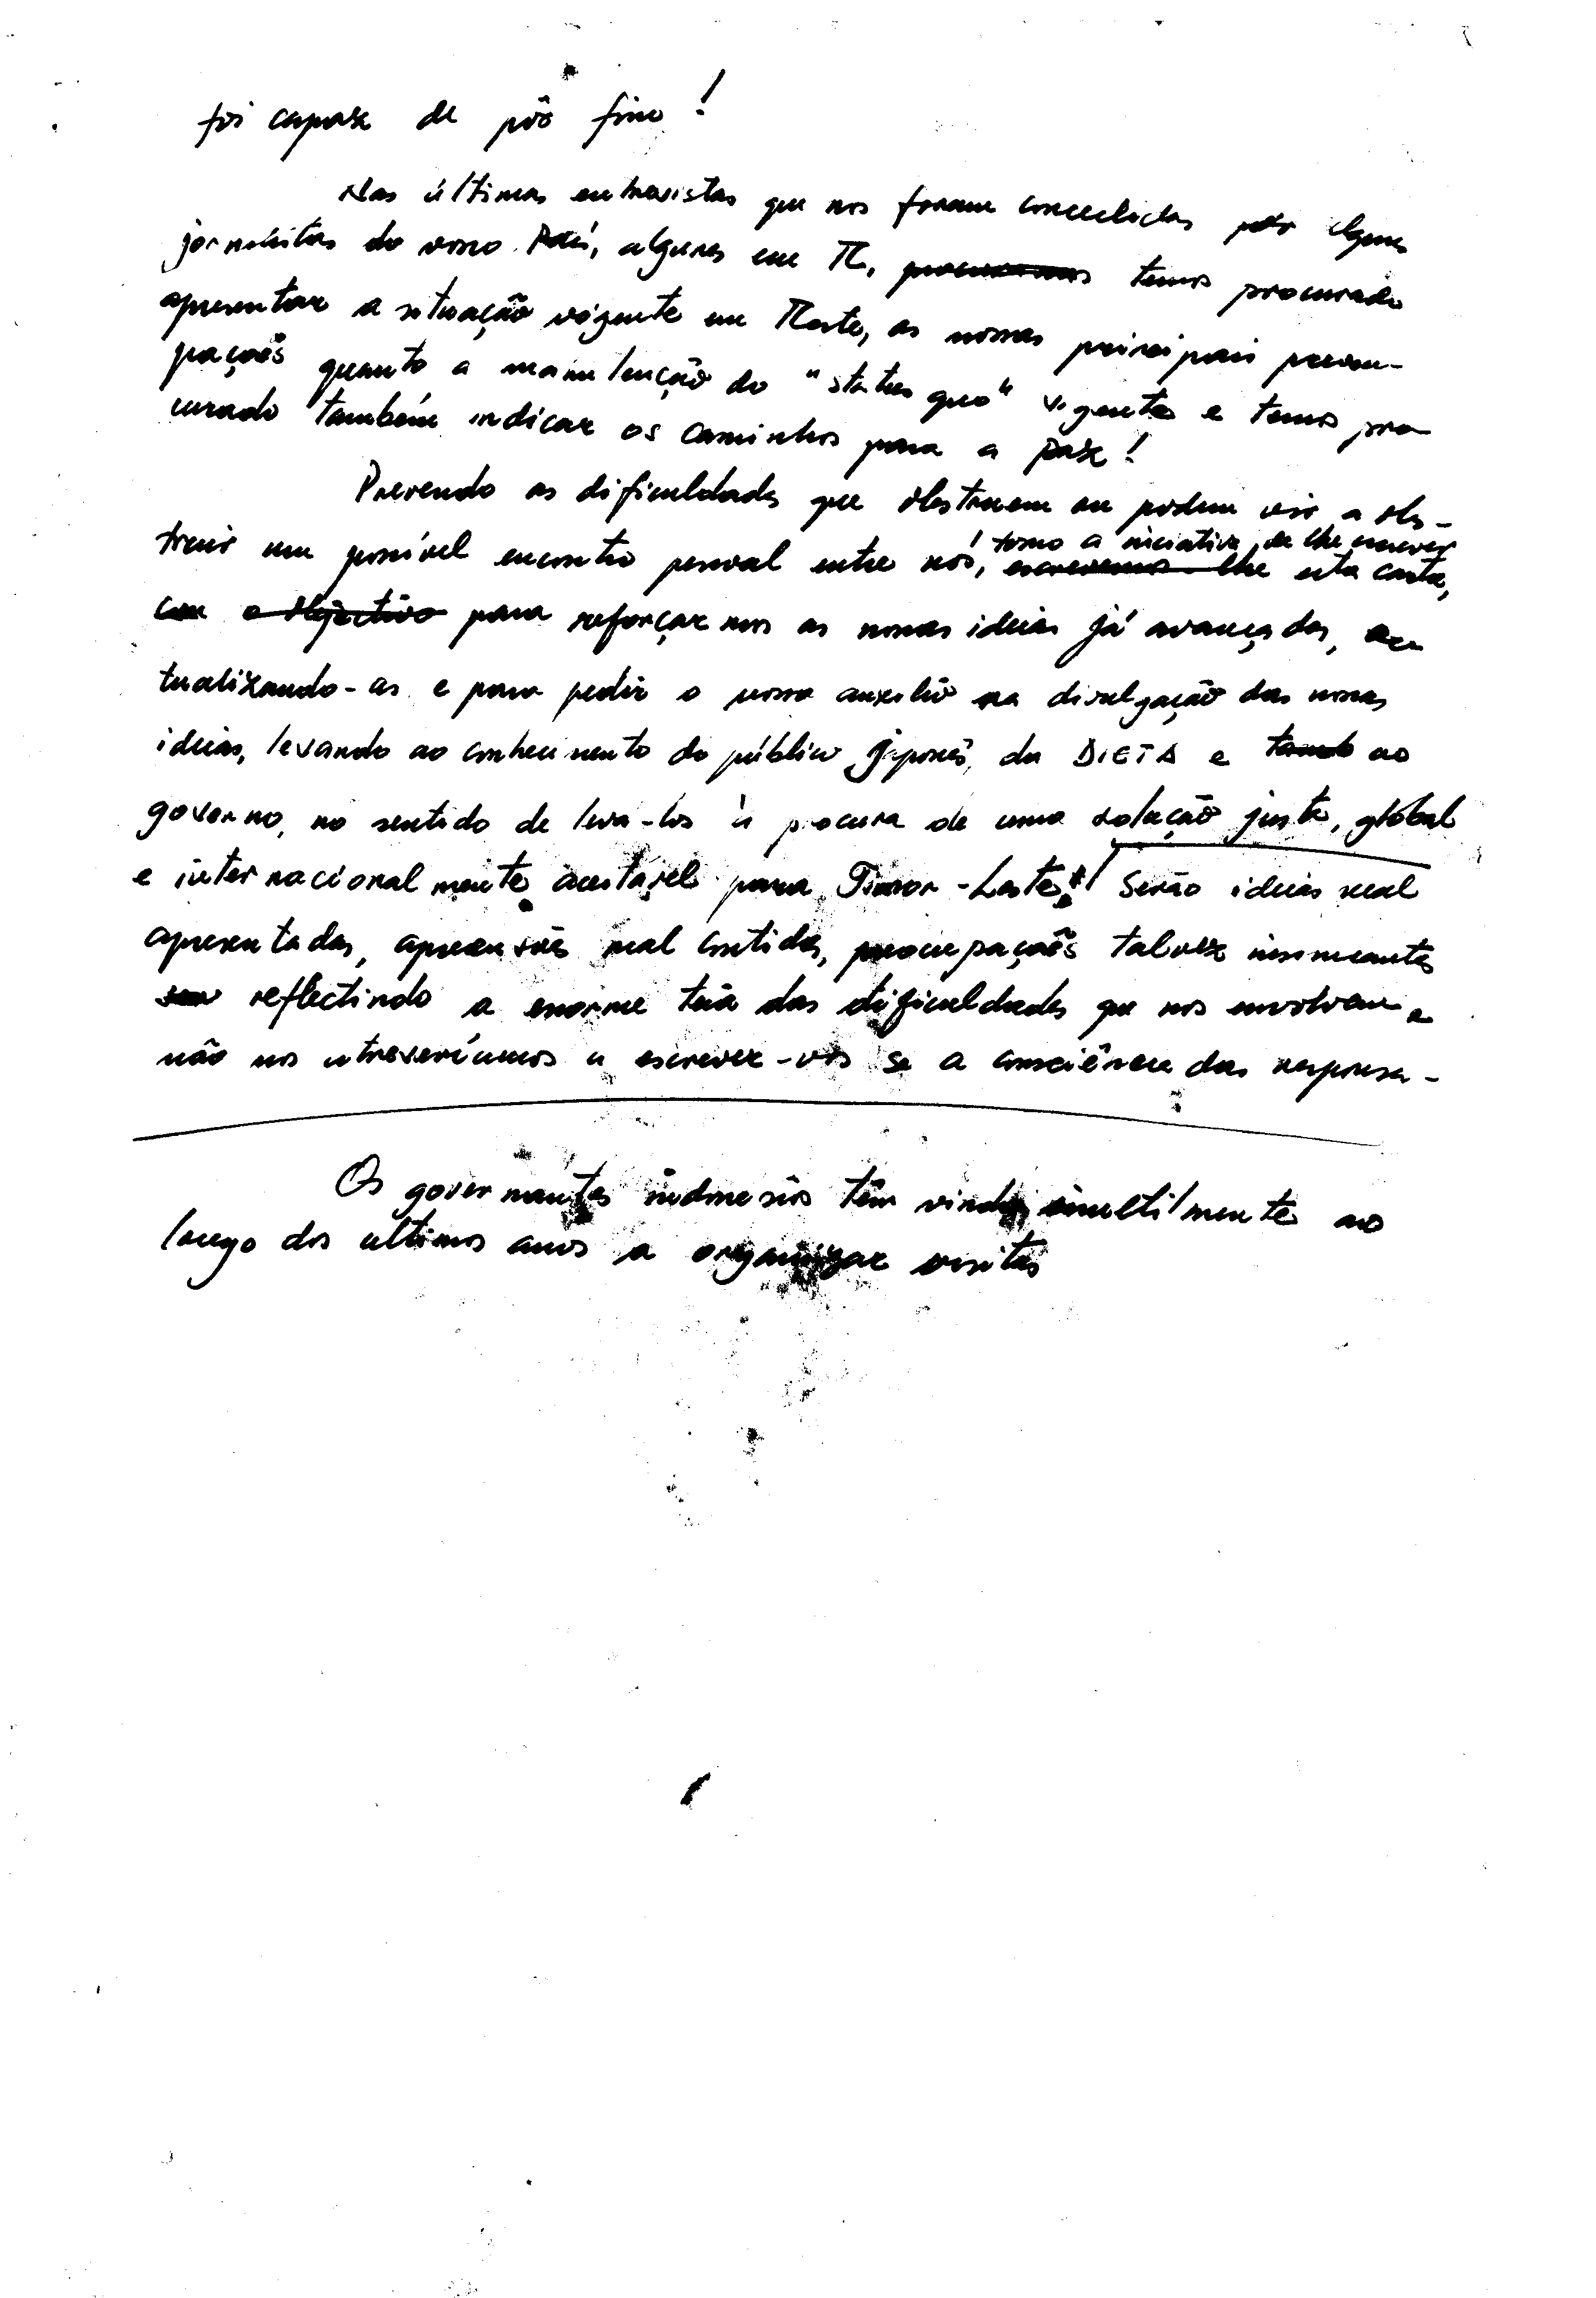 foi capaz de pôr fim!
Nas últimas entrevistas que nos foram concedidas por alguns
jornalistas do vosso País, algures em TL, procuramos temos procurado
apresentar a situação vigente em TLeste, as nossas principais preocu-
pações quanto a manutenção do "status quo" vigente e temos pro
curado também indicar os caminhos para a paz!
Prevendo as dificuldades que obstruem ou podem vir a obs-
tomo a iniciativa de lhe escrever
truir um possível encontro pessoal entre nós, escrevemos-lhe esta carta,
com o objectivo para reforçar mos as nossas ideias já avançadas, ac
tualizando-as e para pedir o vosso auxílio na divulgação das nossas
ideias, levando ao conhecimento do público japonês, da DIETA e ao
governo, no sentido de leva-los à procura de uma solução justa, global
e internacionalmente aceitável para Timor-Leste! Serão ideias mal
apresentadas, apreensões mal contidas, preocupações talvez
reflectindo a enorme teia das dificuldades que nos envolvem e
não nos atreveríamos a escrever-vos se a consciência das responsa-
Os governantes indonésios têm vindo ao
longo dos ultimos anos a organizar visitas